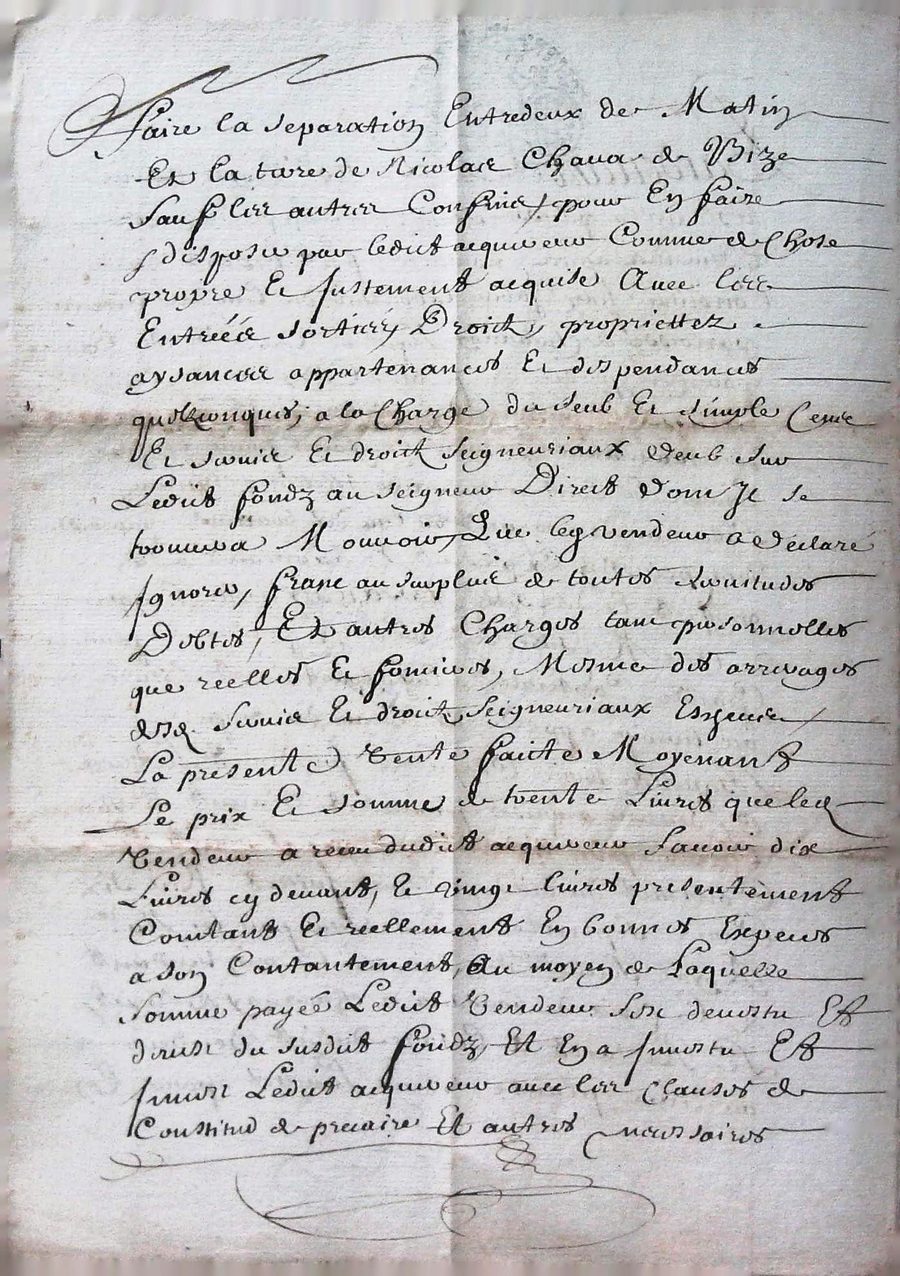 faire la separation Entredeux de Matin
Et la terre de Nicolas Chaua de Bize
Sauf les autres Confins, pour En faire
disposer par ledict acquereur Comme de Chose
propre Et justement acquise Auec ses
Entrées sorties, Droicts, proprietez
aysances appartenances Et despendances
quelconques, a la Charge du seul Et simple Cense
Et seruis Et droicts seigneuriaux deub sur
Ledict fondz au seigneur Direct dont Il se
trouuera Mouuoir, Que led vendeur a declaré
Ignorer, franc au surplus de toutes seruitudes
Debtes, Et autres Charges tant personnelles
que reelles Et foncieres, Mesme des arrerages
desd seruis Et droicts seigneuriaux Escheus,
La presente Vente faicte Moyenant
Le prix Et somme de trente Liures que led
Vendeur a receu dudict acquereur Sauoir dix
Liures cy deuant, Et vingt liures presentement
Contant Et reellement En bonnes Especes
a son Contantement, Au moyen de Laquelle
somme payée Ledict Vendeur s'est deuestu Et
deuest du susdict fondz, Et En a Inuestu Et
Inuest Ledict acquereur auec les clauses de
Constitud de precaire Et autres necessaires